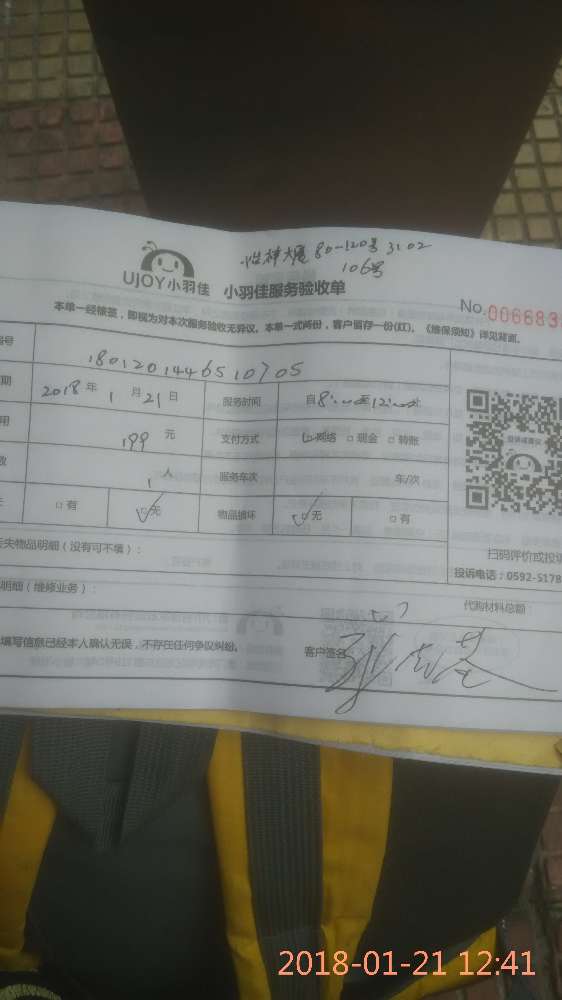 80-120号 3102
106号
UJOY小羽佳 小羽佳服务验收单
No. 006683
本单一经核签，即视为对本次服务验收无异议。本单一式两份，客户留存一份(红)。《维保须知》详见背面。
号 180120144651070S
期 2018年1月21日 服务时间 自8:00至12:00止
用 199元 支付方式 网络 □现金 □转账
数 1人 服务车次 车/次
□有 □无 物品损坏 □无 □有
失物品明细（没有可不填）：
扫码评价或投诉
投诉电话：0592-5178
明细（维修业务）：
代购材料总额：
填写信息已经本人确认无误，不存在任何争议纠纷。 客户签名
2018-01-21 12:41